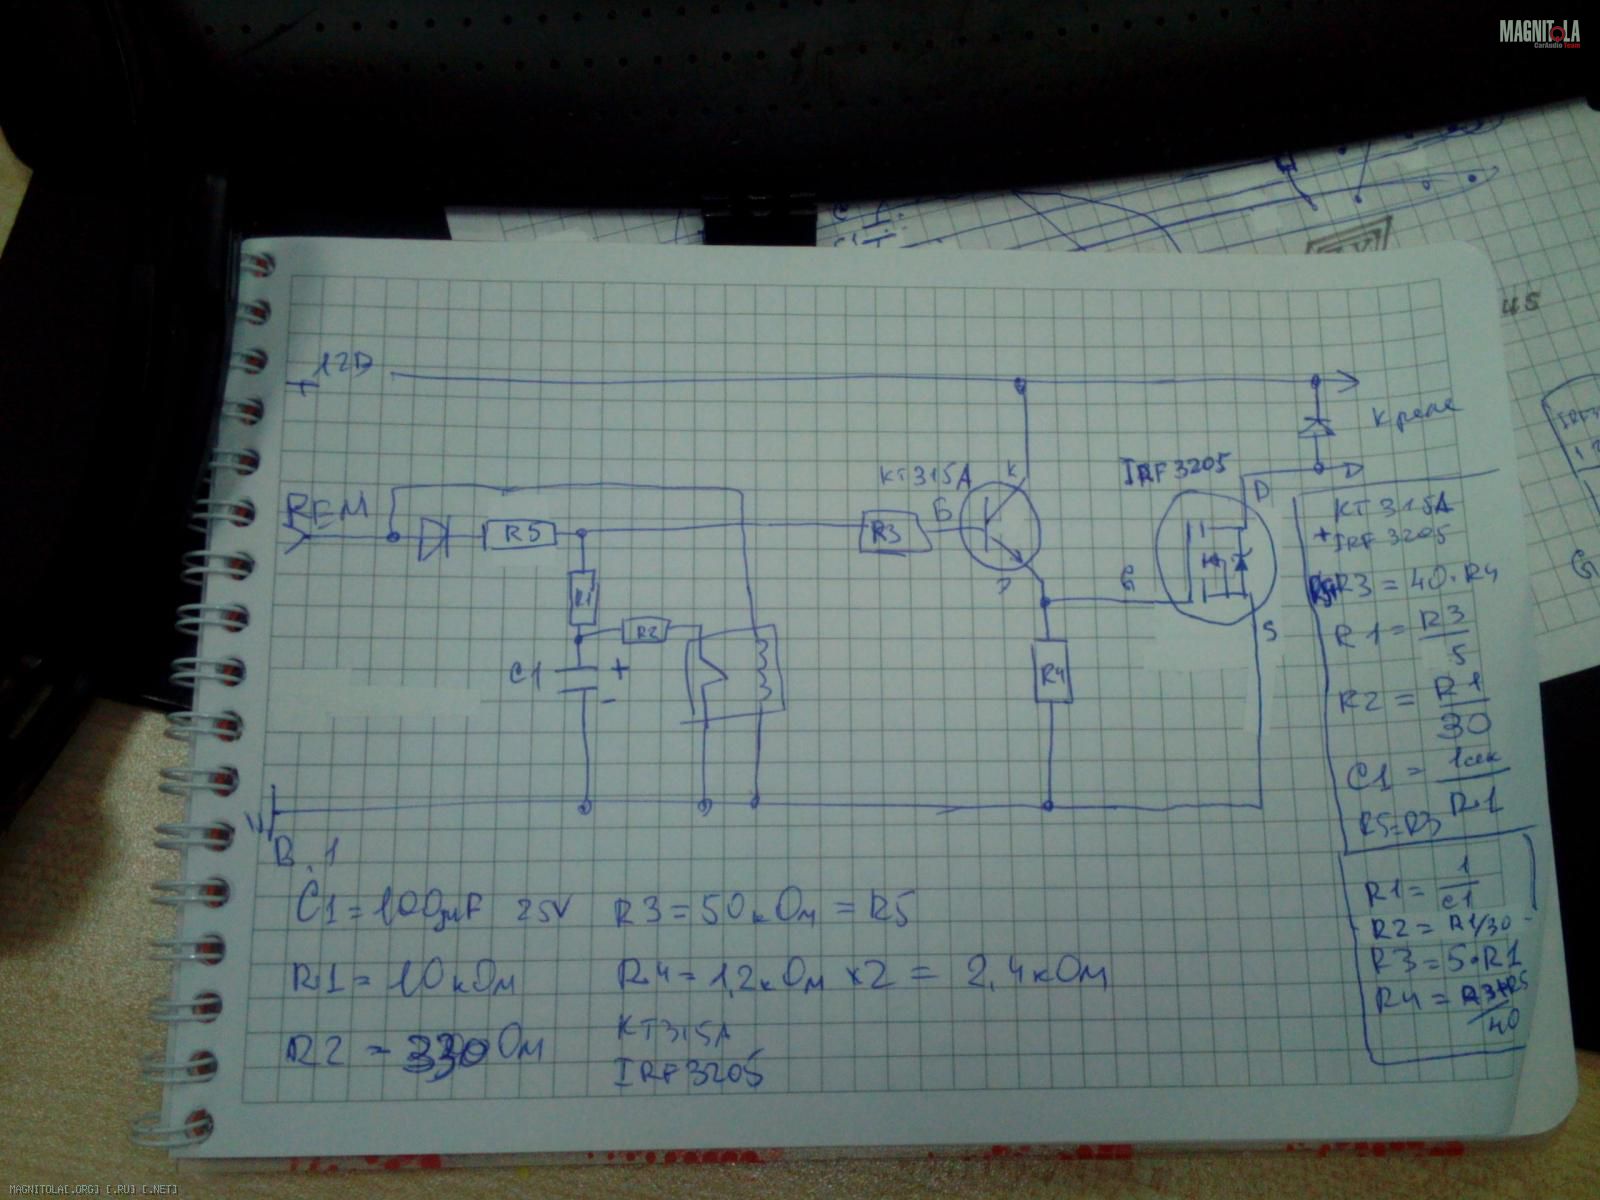 MAGNITOLA
CarAudio Team
45
+ 12В
К реле
КТ315А
К
IRF3205
REM
Б
D
R5
R3
Э
G
R1
R2
S
C1
+
-
R4
КТ315А
+ IRF3205
R3 = 40·R4
R1 = R3/5
R2 = R1/30
C1 = 1сек/R1
R5=R3
В.1
C1 = 100µF 25V R3 = 50кОм = R5
R1 = 10кОм R4 = 1,2кОм x2 = 2,4кОм
R2 = 330 Ом КТ315А
IRF3205
R1 = 1/C1
R2 = R1/30
R3 = 5·R1
R4 = R3+R5/40
MAGNITOLA[.ORG] [.RU] [.NET]